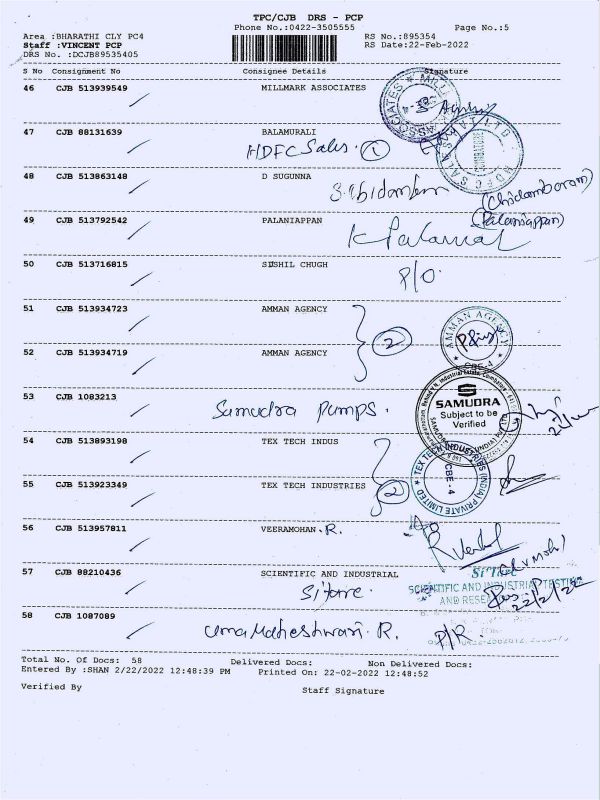 TPC/CJB DRS - PCP
Phone No.:0422-3505555 Page No.:5
Area :BHARATHI CLY PC4 RS No.:895354
Staff :VINCENT PCP RS Date:22-Feb-2022
DRS No. :DCJB89535405
S No Consignment No Consignee Details Signature
46 CJB 513939549 MILLMARK ASSOCIATES
47 CJB 88131639 BALAMURALI
HDFC Sales. 1
48 CJB 513863148 D SUGUNNA
(Chidambaram)
49 CJB 513792542 PALANIAPPAN (Palaniappan)
50 CJB 513716815 SUSHIL CHUGH
P/O
51 CJB 513934723 AMMAN AGENCY
2 AMMAN AGENCY
52 CJB 513934719 AMMAN AGENCY
53 CJB 1083213 Samudra Pumps.
SAMUDRA
Subject to be
Verified
54 CJB 513893198 TEX TECH INDUS
TEX TECH INDUSTRIES (INDIA) PRIVATE LIMITED
CBE - 4
55 CJB 513923349 TEX TECH INDUSTRIES 2
56 CJB 513957811 VEERAMOHAN .R.
57 CJB 88210436 SCIENTIFIC AND INDUSTRIAL
SCIENTIFIC AND INDUSTRIAL TESTING
AND RESEA
22/2/22
58 CJB 1087089
Uma Maheshwari. R. P/R.
Total No. Of Docs: 58 Delivered Docs: Non Delivered Docs:
Entered By :SHAN 2/22/2022 12:48:39 PM Printed On: 22-02-2022 12:48:52
Verified By Staff Signature